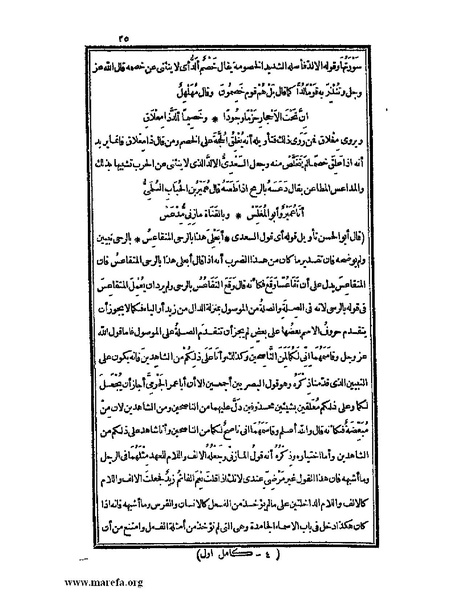 ٢٥
سَوْرَتُها وقوله الألدّ فأصله الشديد الخصومة يقال خَصْمٌ ألَدُّ أى لا ينثنى عن خصمه قال الله عز
وجل وتُنْذِرَ به قَوْمًا لُدًّا كما قال بَلْ هُمْ قوم خَصِمُونَ وقال مُهَلْهِلٌ
انَّ تَحْتَ الاَحْجارِ حَزْمًا وجُودًا * وخَصِيمًا أَلَدَّ ذا مِعْلاقِ
ويروى مغلاق فمن رَوَى ذلك فتأويله أنه يُغْلِقُ الحُجَّةَ على الخصم ومن قال ذا معلاق فانما يريد
أنه اذا عَلِقَ خصمًا لم يَتَخَلَّصْ منه وجعل السَّعْدِىُّ الالدَّ الذى لا ينثنى عن الحرب تشبيها بذلك
والمداعس المطاعن يقال دَعَسَهُ بالرمح اذا طعنه قال عُمَيْرُ بن الحُبَابِ السُّلَمِىُّ
أنا عُمَيْرٌ وأبو المُغَلِّسْ * وبالقَناةِ مازِنِىٌّ مِدْعَسْ
(قال أبو الحسن تأويل قوله أى قول السعدى * أبَعْلِىَ هذا بالرحى المتقاعِسُ * بالرحى تبيين
ولم يوضحه فان تقدير ما كان من هذا الضرب أنه اذا قال أبعلى هذا بالرحى المتقاعس فان
المتقاعِسَ يدل على أن تَقاعُسًا وَقَعَ فكأنه قال وَقَعَ التَّقَاعُسُ بالرحى ولم يرد أن يُعْمِلَ المتقاعسَ
فى قوله بالرحى لانه فى الصلة والصلة من الموصول بمنزلة الدال من زيد أو الياء فكما لا يجوز أن
يتقدم حروفُ الاسم بعضُها على بعض لم يجز أن تتقدم الصلةُ على الموصول فاما قول الله
عز وجل وقاسَمَهُما إنى لكما لمن الناصحين وكذلك وأنا على ذلكم من الشاهدين فانه يكون على
التبيين الذى قدمنا ذكره وهو قول البصريين أجمعين الا أن أبا عمر الجَرْمِىَّ أجاز أن يُجْعَلَ
لكما وعلى ذلكم مُعَلَّقَيْنِ بشيئين محذوفين دَلَّ عليهما من الناصحين ومن الشاهدين لان من
مُبَعِّضَةٌ فكأنه قال والله أعلم وقاسَمَهُما إنى ناصحٌ لكما من الناصحين وأنا شاهد على ذلكم من
الشاهدين وأما اختياره وذِكْرُهُ أنه قول المازنىّ وجَعْلُهُ الالف واللام للعهد مِثْلَهُما فى الرجل
وما أشبهه فان هذا القول غير مَرْضِىٍّ عندى لانك اذا قلت نِعْمَ القائمُ زيدٌ فجعلت الالف واللام
كالالف واللام الداخلتين على مالم يؤخذ من الفعل كالانسان والفرس وما أشبهه فانه اذا
كان هكذا دخل فى باب الاسماء الجامدة وهى التى لم تؤخذ من أمثلة الفعل وامتنع من أن
(٤ - كامل اول)
www.marefa.org